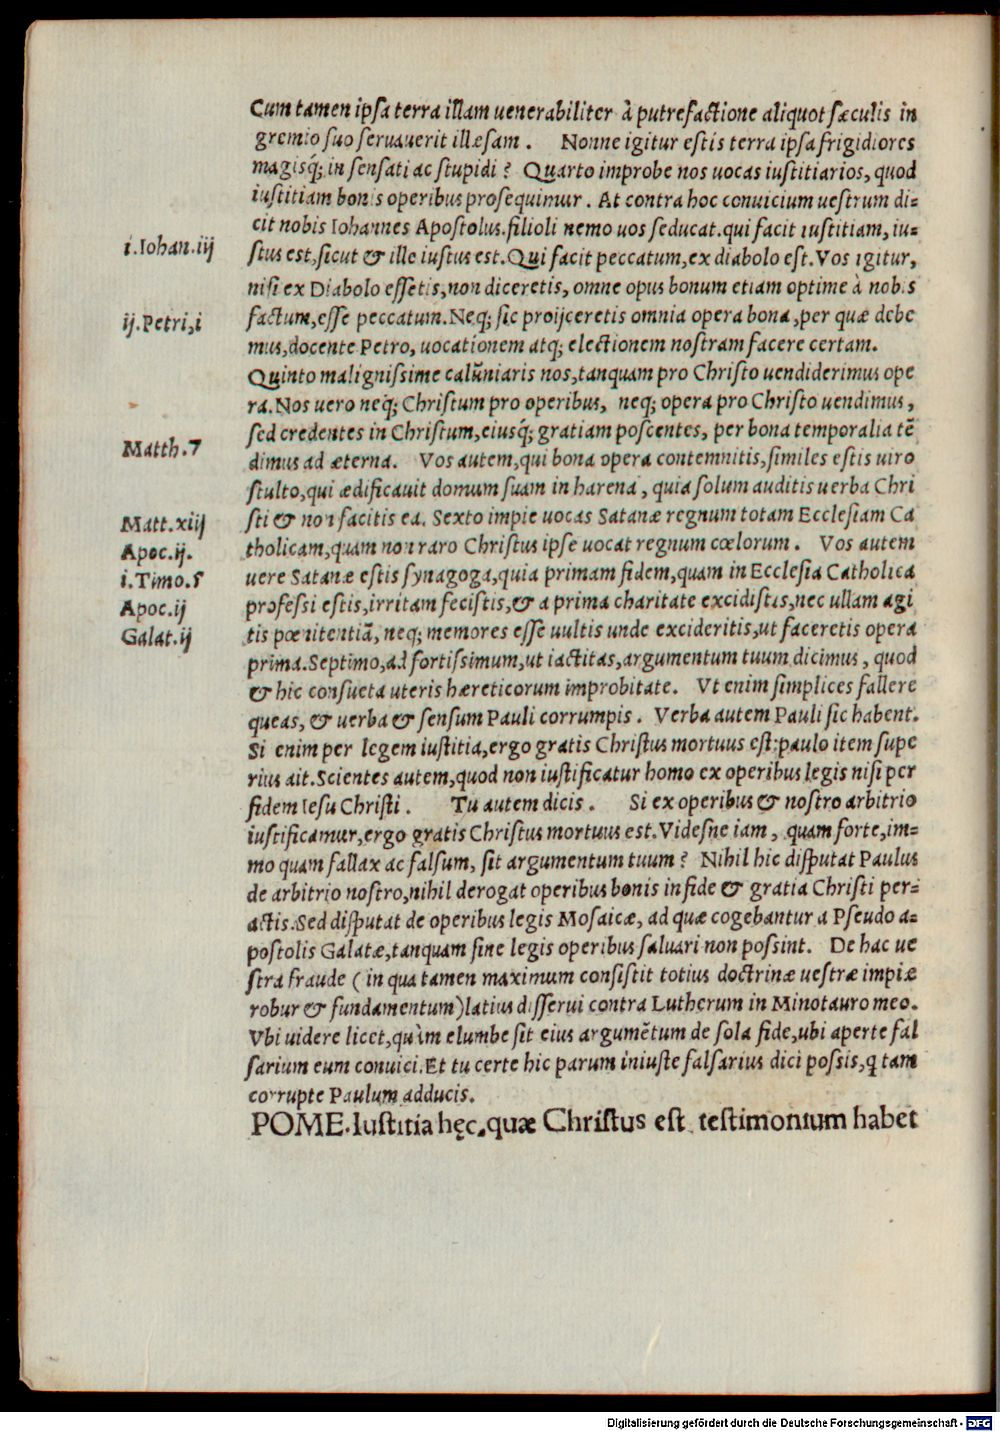 Cum tamen ipsa terra illam uenerabiliter à putrefactione aliquot sæculis in
gremio suo seruauerit illæsam. Nonne igitur estis terra ipsa frigidiores
magisq́; insensati ac stupidi? Quarto improbe nos uocas iustitiarios, quod
iustitiam bonis operibus prosequimur. At contra hoc conuicium uestrum di=
cit nobis Iohannes Apostolus. filioli nemo uos seducat. qui facit iustitiam, iu=
i. Iohan. iij
stus est, sicut & ille iustus est. Qui facit peccatum, ex diabolo est. Vos igitur,
nisi ex Diabolo essetis, non diceretis, omne opus bonum etiam optime à nobis
ij. Petri, i
factum, esse peccatum. Neq; sic proijceretis omnia opera bona, per quæ debe
mus, docente Petro, uocationem atq; electionem nostram facere certam.
Quinto malignissime calũniaris nos, tanquam pro Christo uendiderimus ope
ra. Nos uero neq́; Christum pro operibus, neq; opera pro Christo uendimus,
sed credentes in Christum, eiusq́; gratiam poscentes, per bona temporalia tẽ
Matth. 7
dimus ad æterna. Vos autem, qui bona opera contemnitis, similes estis uiro
stulto, qui ædificauit domum suam in harena, quia solum auditis uerba Chri
Matt. xiij
sti & non facitis ea. Sexto impie uocas Satanæ regnum totam Ecclesiam Ca
Apoc. ij.
tholicam, quam non raro Christus ipse uocat regnum cœlorum. Vos autem
i. Timo. 5
uere Satanæ estis synagoga, quia primam fidem, quam in Ecclesia Catholica
Apoc. ij
professi estis, irritam fecistis, & a prima charitate excidistis, nec ullam agi
Galat. ij
tis pœnitentiã, neq; memores esse uultis unde excideritis, ut faceretis opera
prima. Septimo, ad fortissimum, ut iactitas, argumentum tuum dicimus, quod
& hic consueta uteris hæreticorum improbitate. Vt enim simplices fallere
queas, & uerba & sensum Pauli corrumpis. Verba autem Pauli sic habent.
Si enim per legem iustitia, ergo gratis Christus mortuus est: paulo item supe
rius ait. Scientes autem, quod non iustificatur homo ex operibus legis nisi per
fidem Iesu Christi. Tu autem dicis. Si ex operibus & nostro arbitrio
iustificamur, ergo gratis Christus mortuus est. Videsne iam, quam forte, im=
mo quam fallax ac falsum, sit argumentum tuum? Nihil hic disputat Paulus
de arbitrio nostro, nihil derogat operibus bonis in fide & gratia Christi per=
actis. Sed disputat de operibus legis Mosaicæ, ad quæ cogebantur a Pseudo a=
postolis Galatæ, tanquam sine legis operibus saluari non possint. De hac ue
stra fraude (in qua tamen maximum consistit totius doctrinæ uestræ impiæ
robur & fundamentum) latius disserui contra Lutherum in Minotauro meo.
Vbi uidere licet, quàm elumbe sit eius argumẽtum de sola fide, ubi aperte fal
sarium eum conuici. Et tu certe hic parum iniuste falsarius dici possis, q tam
corrupte Paulum adducis.
POME. Iustitia hęc, quæ Christus est testimonium habet
Digitalisierung gefördert durch die Deutsche Forschungsgemeinschaft - DFG